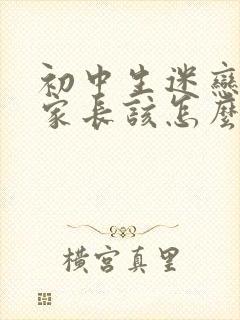 初中生迷戀
家長該怎麼
橫宮真里